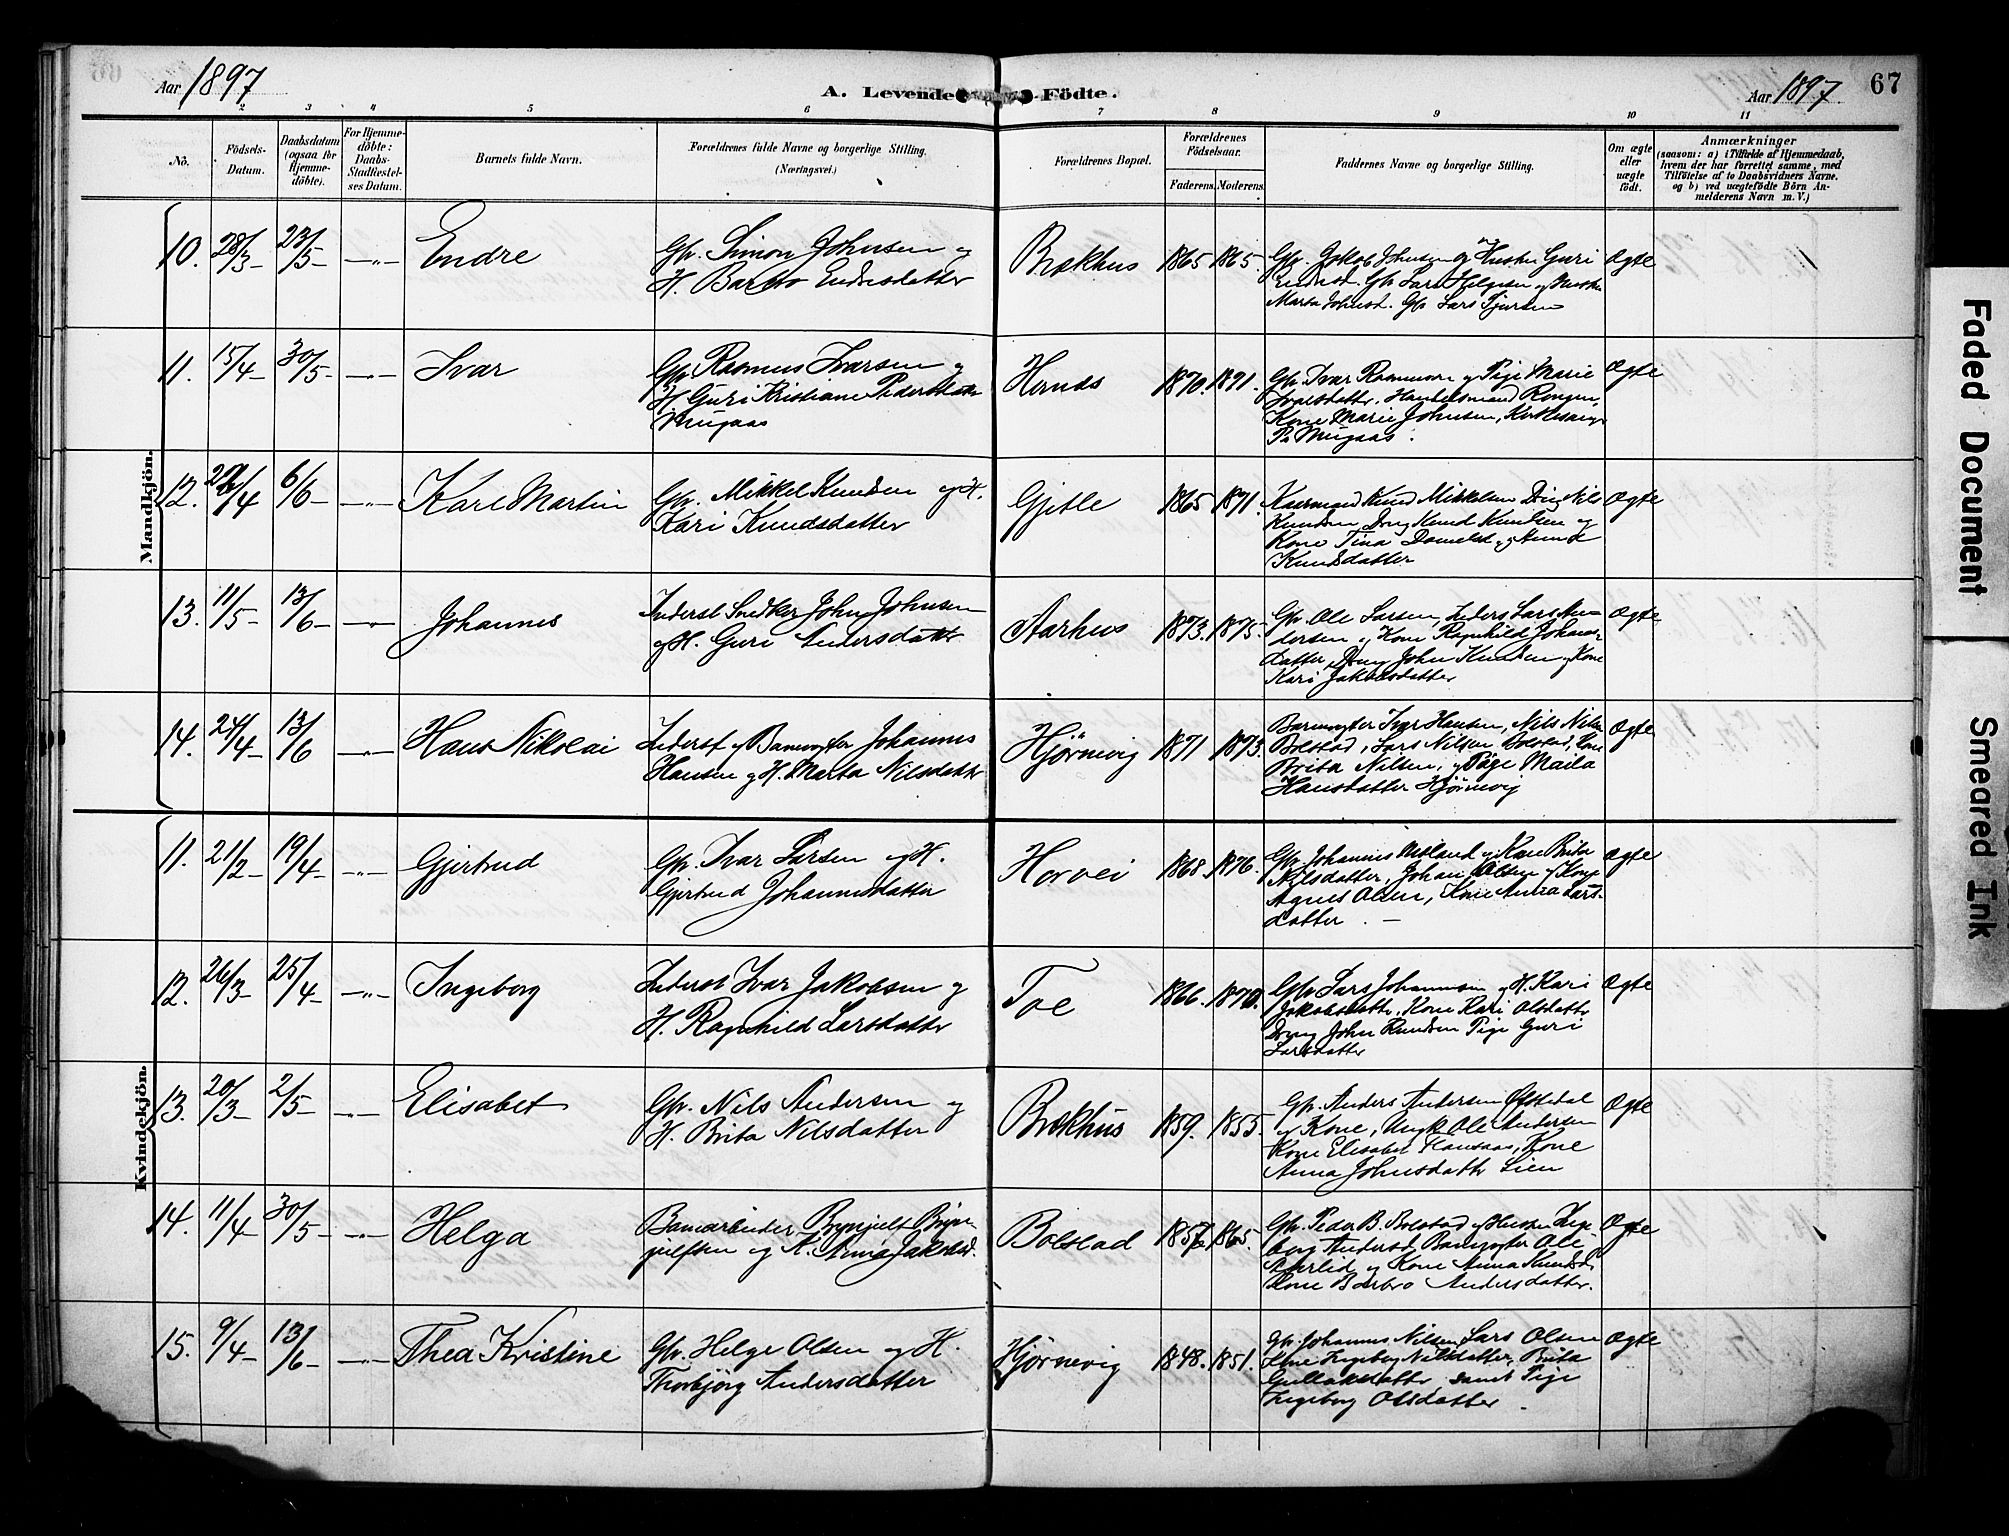 Aar 1897
A. Levende Födte.
Aar 1897.
67
2 3 4 5 6 7 8 9 10 11
No.
Födsels-Datum.
Daabsdatum (ogsaa for Hjemmedöbte).
For Hjemmedöbte: Daabs-Stadfæstelses Datum.
Barnets fulde Navn.
Forældrenes fulde Navne og borgerlige Stilling.
(Næringsvei.)
Forældrenes Bopæl.
Forældrenes Födselsaar.
Faderens. Moderens.
Faddernes Navne og borgerlige Stilling.
Om ægte eller uægte födt.
Anmærkninger
(saasom: a) i Tilfælde af Hjemmedaab,
hvem der har forrettet samme, med
Tilföielse af to Daabsvidners Navne,
og b) ved uægtefödte Börn An-
melderens Navn m. V.)
Mandkjön.
10. 28/3 23/5 —"— Endre
Gbr. Simon Johnsen og
H. Barbro Endresdatter
Brækhus 1865 1865.
Gbr. Jokob Johnsen og Hustru Guri
Endresd. Gbr Lars Helgesen og Hustru
Marta Johnsd. Gbr Lars
Ægte
11. 15/4 30/5 —"— Ivar
Gbr. Rasmus Ivarsen og
H. Guri Kristiane Pedersdatter
Mugaas
1870. 1871.
Gbr. Ivar Rasmussen og Pige Marie
Ivarsdatter, Handelsmand
Kone Marie Johnsen,
P. Mugaas.
Ægte
12. 6/6 —"— Karl Martin
Gbr. Mikkel Knudsen og H.
Kari Knudsdatter
Gjetle 1865 1871.
Kaarmand Knud Mikkelsen Dreng Nils
Knudsen Dreng Knud Knudsen og
Kone Tina og
Knudsdatter
Ægte
13. 11/5 13/6 —"— Johannes
Inderst Snedker John Johnsen
og H. Guri Andersdatter
Aarhus 1873. 1875.
Gbr Ole Larsen, Inders Lars An-
dersen og Kone Ragnhild Johannes-
datter, Dreng John Knudsen og Kone
Kari Jakobsdatter
Ægte
14. 24/4 13/6 —"— Hans Nikolai
Inderst og Banevogter Johannes
Hansen og H. Marta Nilsdatter
Hjørnevig 1871 1873.
Banevogter Ivar Hansen, Nils Nilsen
Bolstad, Lars Nilsen Bolstad, Kone
Brita Nilsen, og Pige Maila
Hansdatter Hjørnevig
Ægte
Kvindekjön.
11. 21/2 19/4 —"— Gjertrud
Gbr. Ivar Larsen og H.
Gjertrud Johannesdatter
Horvei 1868. 1876.
Gbr. Johannes og Kone Brita
Nilsdatter, Johan Olsen og Kone
Agnes Olsen, Kone Anna Lars-
datter
Ægte
12. 26/3 25/4 —"— Ingeborg
Inderst Ivar Jakobsen og
H. Ragnhild Larsdatter
Toe 1866. 1870.
Gbr Lars Johannesen og H. Kari
Jakobsdatter, Kone Kari Olsdatter
Dreng John Knudsen Pige Guri
Larsdatter
Ægte
13. 20/3 2/5 —"— Elisabet
Gbr. Nils Andersen og
H. Brita Nilsdatter
Brækhus 1859. 1855.
Gbr. Anders Andersen
og Kone, Ungk Ole Andersen
Kone Elisabet Kone
Anna Johnsdatter Lien
Ægte
14. 11/4 30/5 —"— Helga
Banearbeider Brynjulf Bryn-
julfsen og H. Anna Jakobsd.
Bolstad 1857 1865.
Gbr. Peder B. Bolstad og Hustru Inge-
borg Andersd, Banevogter Ole
og Kone Anna Knudsd,
Kone Barbro Andersdatter.
Ægte
15. 9/4 13/6 —"— Thea Kristine
Gbr. Helge Olsen og H.
Thorbjörg Andersdatter
Hjørnevig 1848. 1851.
Gbr. Johannes Nilsen, Lars Olsen
Kone Ingeborg Nilsdatter, Brita
Gullaksdatter samt Pige
Ingeborg Olsdatter.
Ægte
Faded Document
Smeared Ink